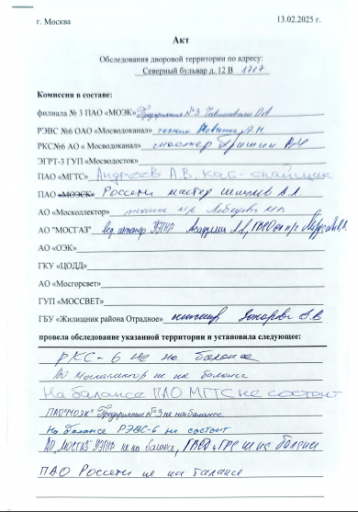 г. Москва 13.02.2025 г.
Акт
Обследования дворовой территории по адресу:
Северный бульвар д. 12 В 1707
Комиссия в составе:
филиала № 3 ПАО «МОЭК» Предприятие №3
РЭВС №6 ОАО «Мосводоканал» техник
РКС№6 АО « Мосводоканал» мастер Гришин
ЭГРТ-3 ГУП «Мосводосток»
ПАО «МГТС» Андреев А.В. каб-спайщик
ПАО «МОЭСК» Россети мастер А.А.
АО «Москоллектор» техник
АО "МОСГАЗ" вед. инженер
АО «ОЭК»
ГКУ «ЦОДД»
АО «Мосгорсвет»
ГУП «МОССВЕТ»
ГБУ «Жилищник района Отрадное» инженер
провела обследование указанной территории и установила следующее:
РКС-6 не на балансе
АО Москоллектор не на балансе
На балансе ПАО МГТС не состоит
ПАО "МОЭК" Предприятие №3 не на балансе
На балансе РЭВС-6 не состоит
АО "МОСГАЗ" не на балансе, и ГРС не на балансе
ПАО Россети не на балансе